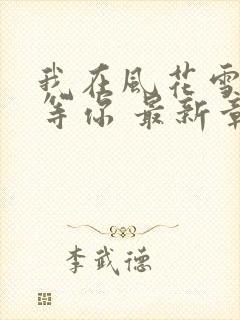 我在風花雪
等你 最新章
李武德